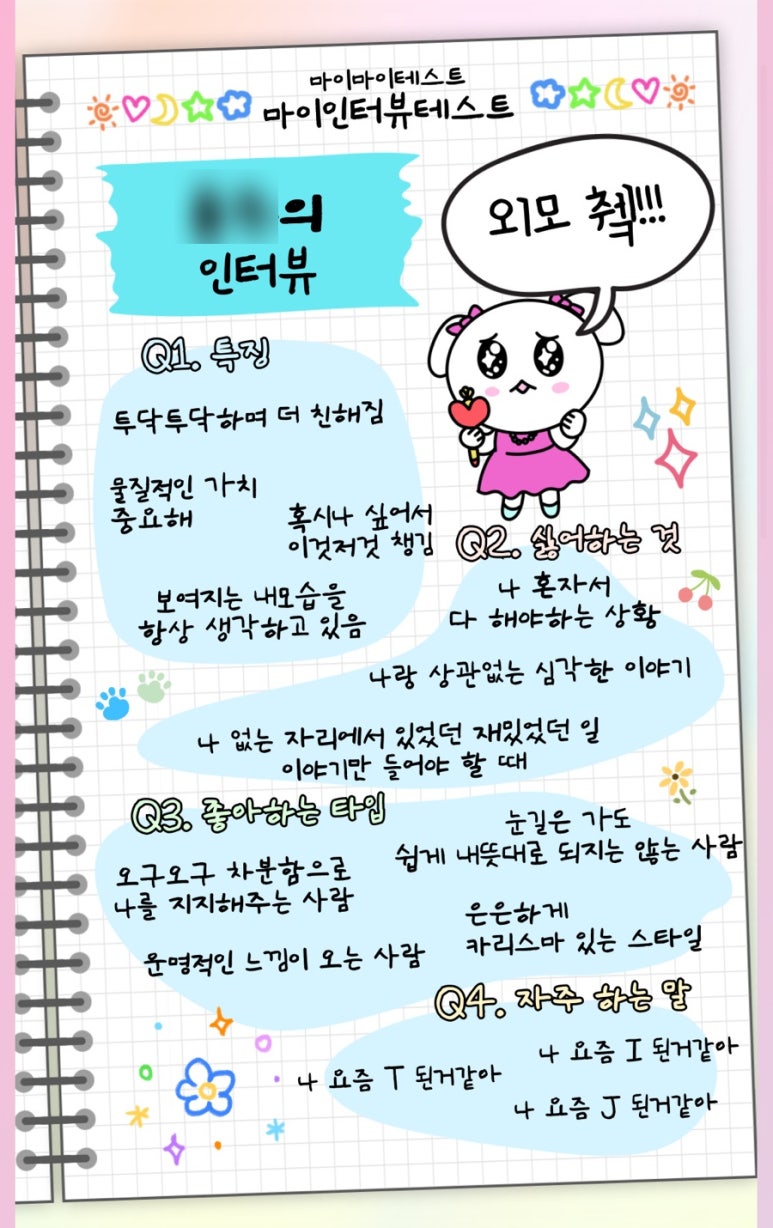 마이마이테스트
마이인터뷰테스트
의
인터뷰
외모 췤!!!
Q1. 특징
투닥투닥하며 더 친해짐
물질적인 가치
중요해
혹시나 싶어서
이것저것 챙김
보여지는 내모습을
항상 생각하고 있음
Q2. 싫어하는 것
나 혼자서
다 해야하는 상황
나랑 상관없는 심각한 이야기
나 없는 자리에서 있었던 재밌었던 일
이야기만 들어야 할 때
Q3. 좋아하는 타입
눈길은 가도
쉽게 내뜻대로 되지는 않는 사람
오구오구 차분함으로
나를 지지해주는 사람
은은하게
카리스마 있는 스타일
운명적인 느낌이 오는 사람
Q4. 자주 하는 말
나 요즘 I 된거같아
나 요즘 T 된거같아
나 요즘 J 된거같아